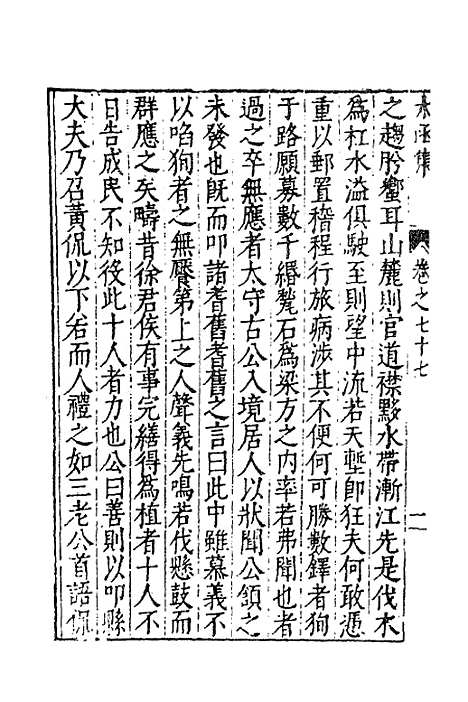 太函集
卷之七十七
二
之趨肸蠁耳山麓則官道襟黟水帶漸江先是伐木
為杠水溢俱駛至則望中流若天塹即狂夫何敢馮
重以郵置稽程行旅病涉其不便何可勝數鐸者狥
于路願募數千緡甃石為梁方之内率若弗聞也者
過之卒無應者太守古公入境居人以狀聞公頷之
未發也既而叩諸耆舊耆舊之言曰此中雖慕義不
以啗狥者之無膺第上之人聲義先鳴若伐懸鼓而
群應之矣疇昔徐君侯有事完繕得為植者十人不
日告成民不知役此十人者力也公曰善則以叩縣
大夫乃召黃侃以下若而人禮之如三老公首語侃